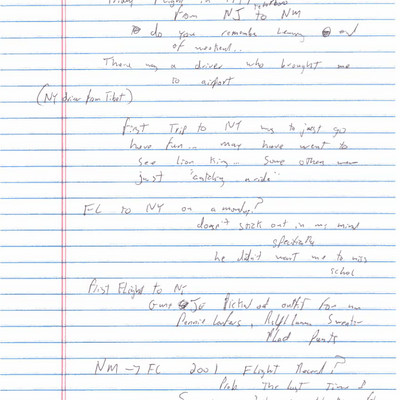 Flight in
from NJ to NM
do you remember leaving end
of weekend..
There was a driver who brought me
to airport
(NY driver from Tibet)
First Trip to NY was to just go
have fun... may have went to
see Lion King... Some others were
just "catching a ride"
FL to NY on a monday?
doesn't stick out in my mind
specifically
he didn't want me to miss
school
First Flight to NY
picked out outfit for me
Pennie Loafers, Ralph Lauren Sweater
Plad Pants
NM → FL 2001 Flight Record?
Prob. The last Time I